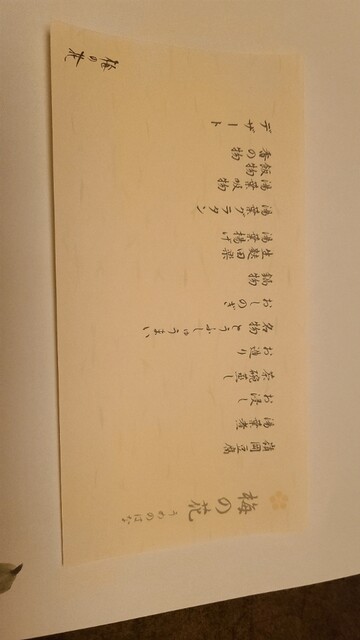 梅の花
うめのはな
嶺岡豆腐
湯葉煮
お浸し
茶碗蒸し
お造り
名物 とうふしゅうまい
おしのぎ
鍋物
生麩田楽
湯葉揚げ
湯葉グラタン
湯葉吸物
飯物
香の物
デザート
梅の花